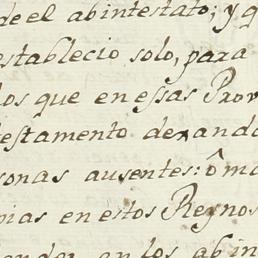 de el abintestato; y q
establecio solo, para
los que en essas Prov
testamento dexando
sonas ausentes: ô mo
pias en estos Reynos
ender en los abin